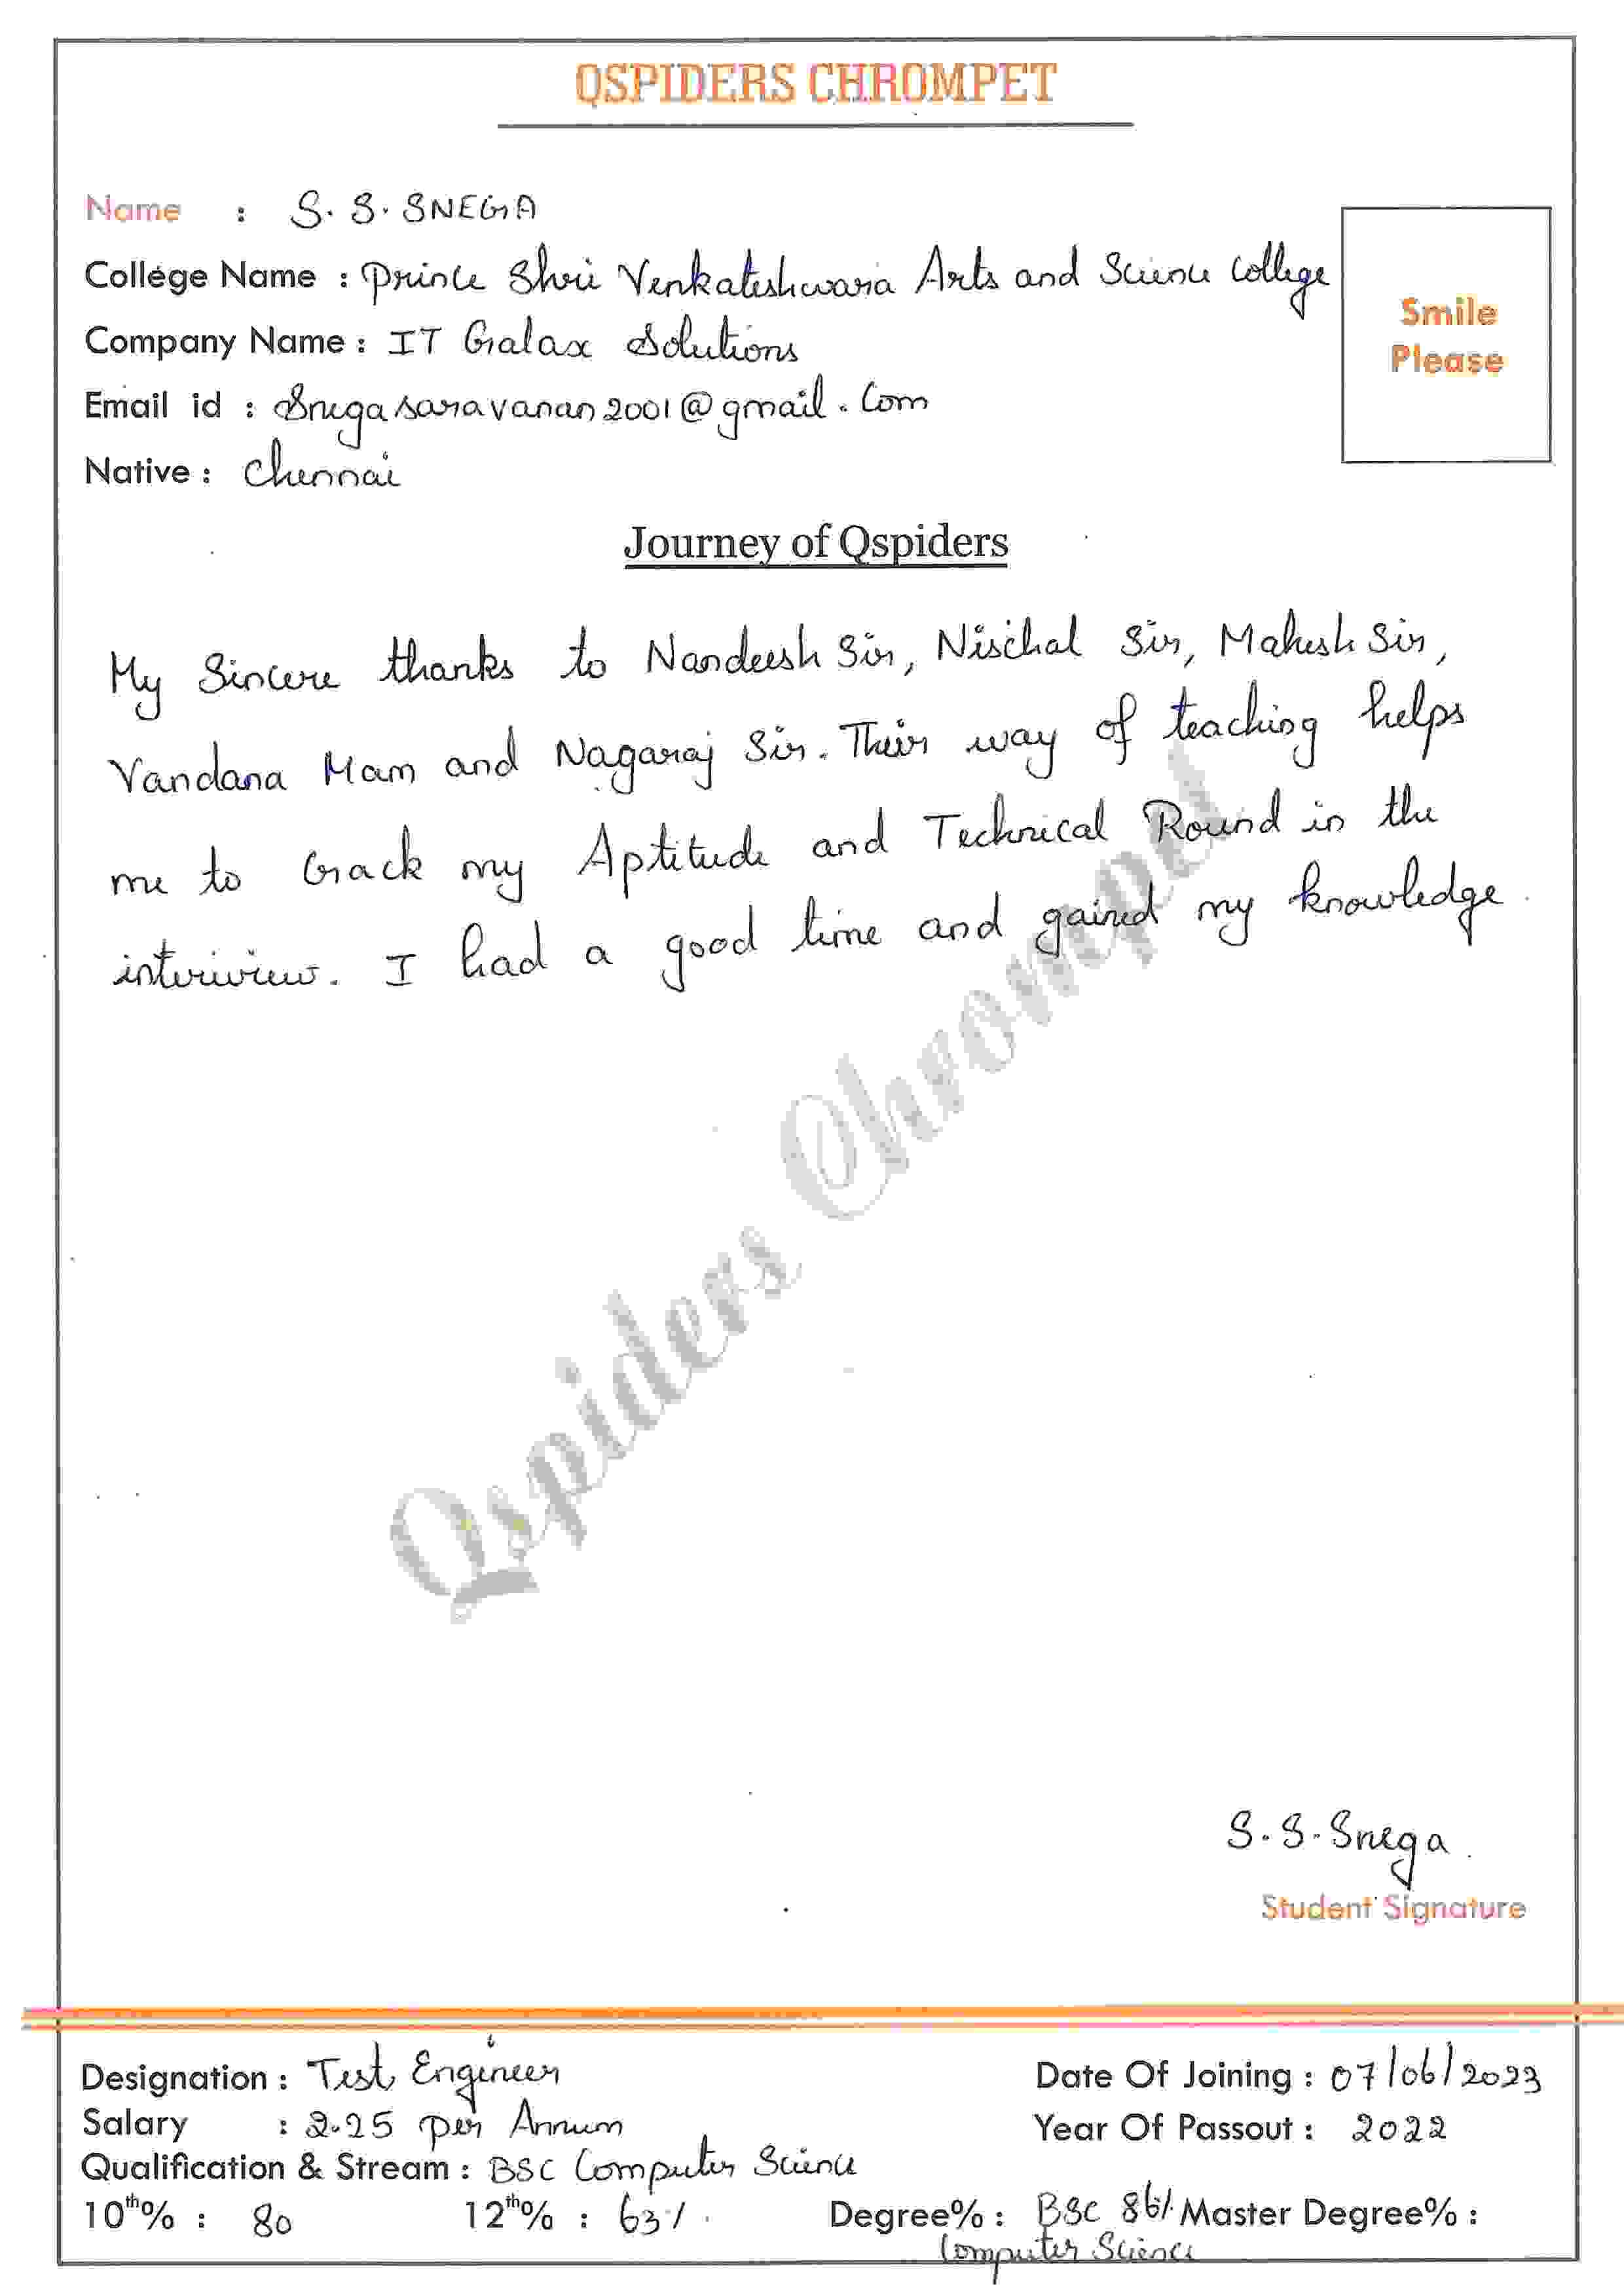 QSPIDERS CHROMPET
Name : S. S. SNEGA
College Name : Prince Shri Venkateshwara Arts and Science College
Company Name : IT Galax Solutions
Email id : Snegasaravanan2001@gmail.com
Native : Chennai
Smile
Please
Journey of Qspiders
My Sincere thanks to Nandeesh Sir, Nischal Sir, Mahesh Sir,
Vandana Mam and Nagaraj Sir. Their way of teaching helps
me to Crack my Aptitude and Technical Round in the
interview. I had a good time and gained my knowledge
Qspiders Chrompet
S. S. Snega
Student Signature
Designation : Test Engineer
Date Of Joining : 07/06/2023
Salary : 2.25 per Annum
Year Of Passout : 2022
Qualification & Stream : BSC Computer Science
10th% : 80 12th% : 63% . Degree% : BSC 86% Master Degree% :
Computer Science